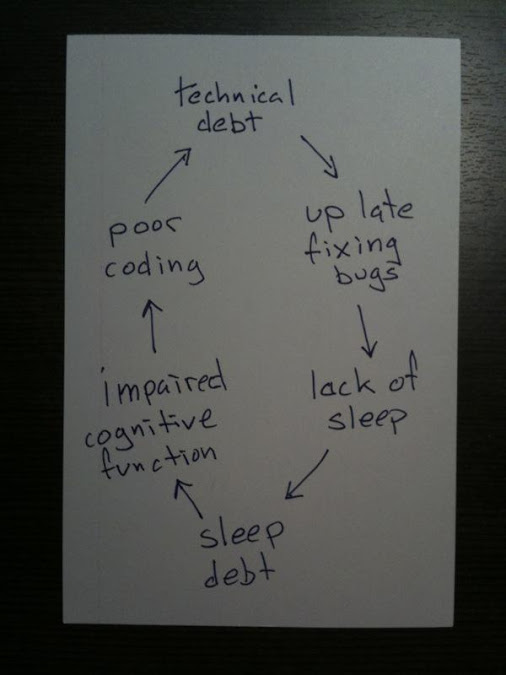 technical
debt
up late
fixing
bugs
lack of
sleep
sleep
debt
impaired
cognitive
function
poor
coding